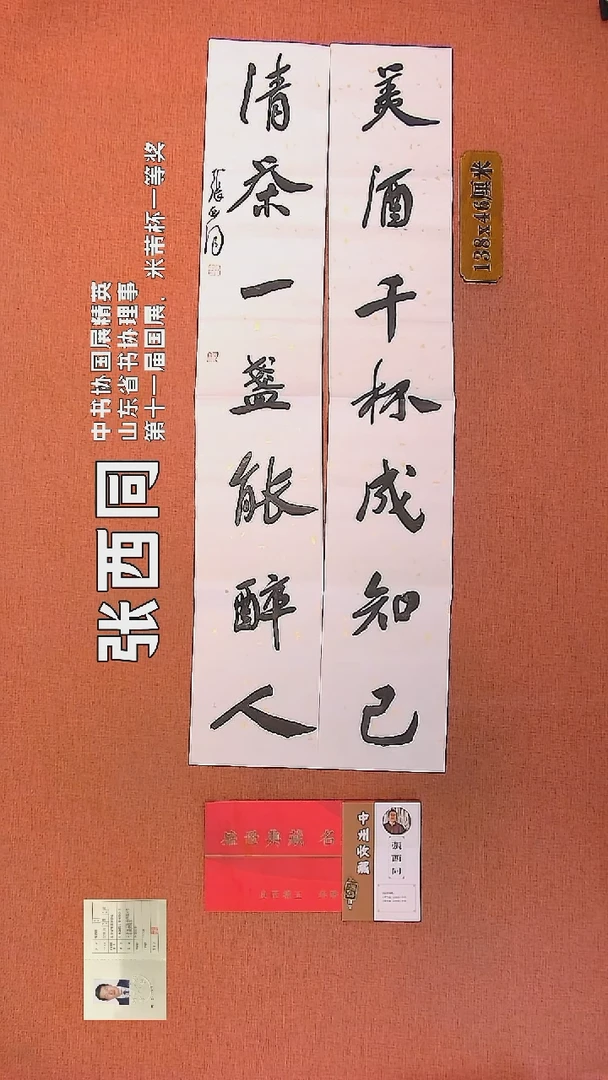 美酒千杯成知己
清茶一盏能醉人
张西同
138x46厘米
中书协国展精英
山东省书协理事
第十一届国展、米芾杯一等奖
张西同
中州收藏
張西同